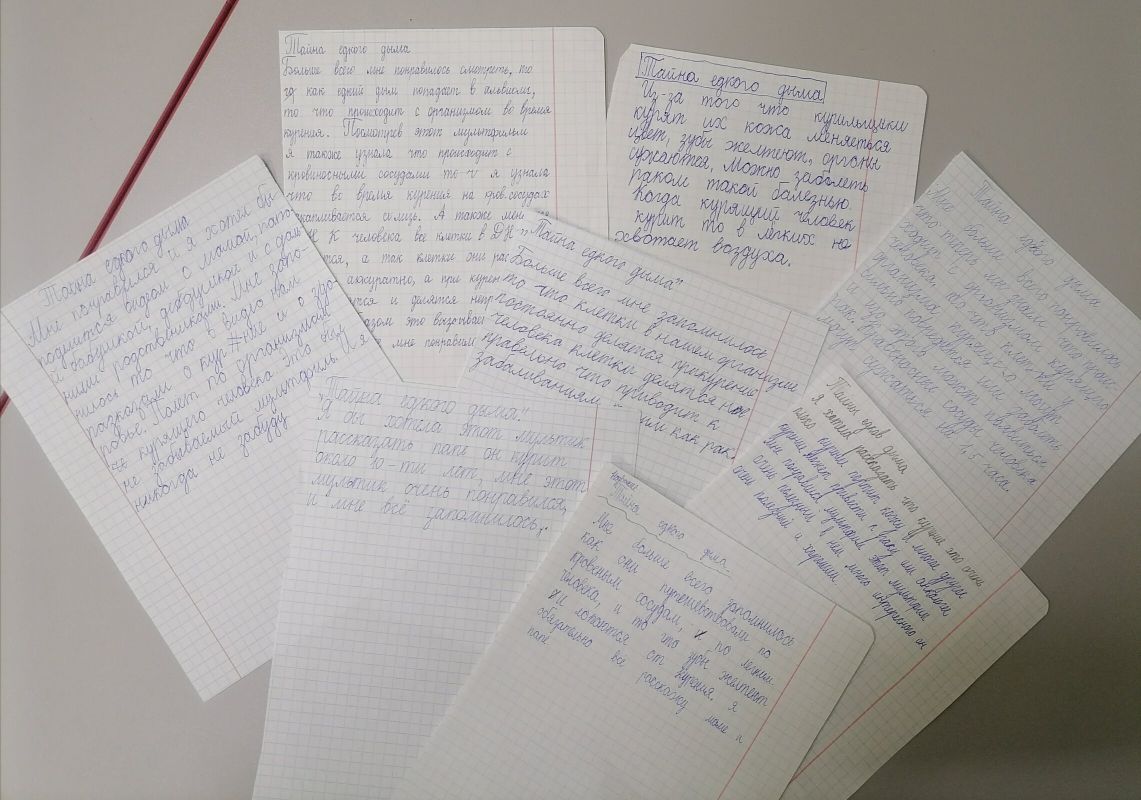 Тайна едкого дыма
Больше всего мне понравилось смотреть, то
как едкий дым попадает в альвиолы,
то что происходит с организмом во время
курения. Посмотрев этот мультфильм
я также узнала что происходит с
кровиносными сосудами то я узнала
что во время курения на кров. сосудах
скапливается слизь. А также мен
К человека все клетки в ДН
тся, а так клетки они рас
аккуратно, а при курен
тся и делятся непр
азом это вызывает
мне понравил
Тайна едкого дыма
Из-за того что курильщики
курят их кожа меняеться
цвет, зубы желтеют, органы
сужаются, можно заболеть
раком такой болезнью.
Когда курящий человек
курит то в лёгких не
хвотает воздуха.
Тайна едкого дыма
Мне понравился и я хотел бы
поднится видом с мамой, папо-
й бабушкой, дедушкой и с дал-
ними родственниками. Мне запо-
нилось то что в видео нам
разказали о кур
и о здо-
ровье. Полет по организмам
курящего человека. Это был
не забываемый мультфильм. И я
никогда не забуду
"Тайна едкого дыма"
Больше всего мне запомнилось
то что клетки в нашем организме
постоянно делятся прикурение
человека клетки делятся не
правельно что приводит к
забаливаниям
им как рак.
Тайна едкого дыма
Мне больше всего понравилось
что теперь мы знаем что проис-
ходит с организмом курящего
человека, то что клетки у
организма курящего могут
сильно повредится или заболеть
а ещё храп может появиться
как кравеносные сосуды человека
могут сужаться на 1,5 часа.
"Тайна едкого дыма"
Я бы хотела этот мультик
рассказать папе он курит
около 10-ти лет, мне этот
мультик очень понравился,
и мне всё запомнилось.
Тайны едков дыма
я хотела рассказать что курение это очень
плохо курение портит кожу и многое другое
курение может привести к раку или
Мне понравился мультфильм Этот мультфильм
очень полезный в нём много интересного он
очень полезный и хороший
Тайна едкого дыма.
Мне больше всего запомнилось
как они путешевствовали по
кровеным сосудам, по легким
человека, и то что зубы желтеют
и лопаются от курения. я
обезательно все расскажу маме и
папе.